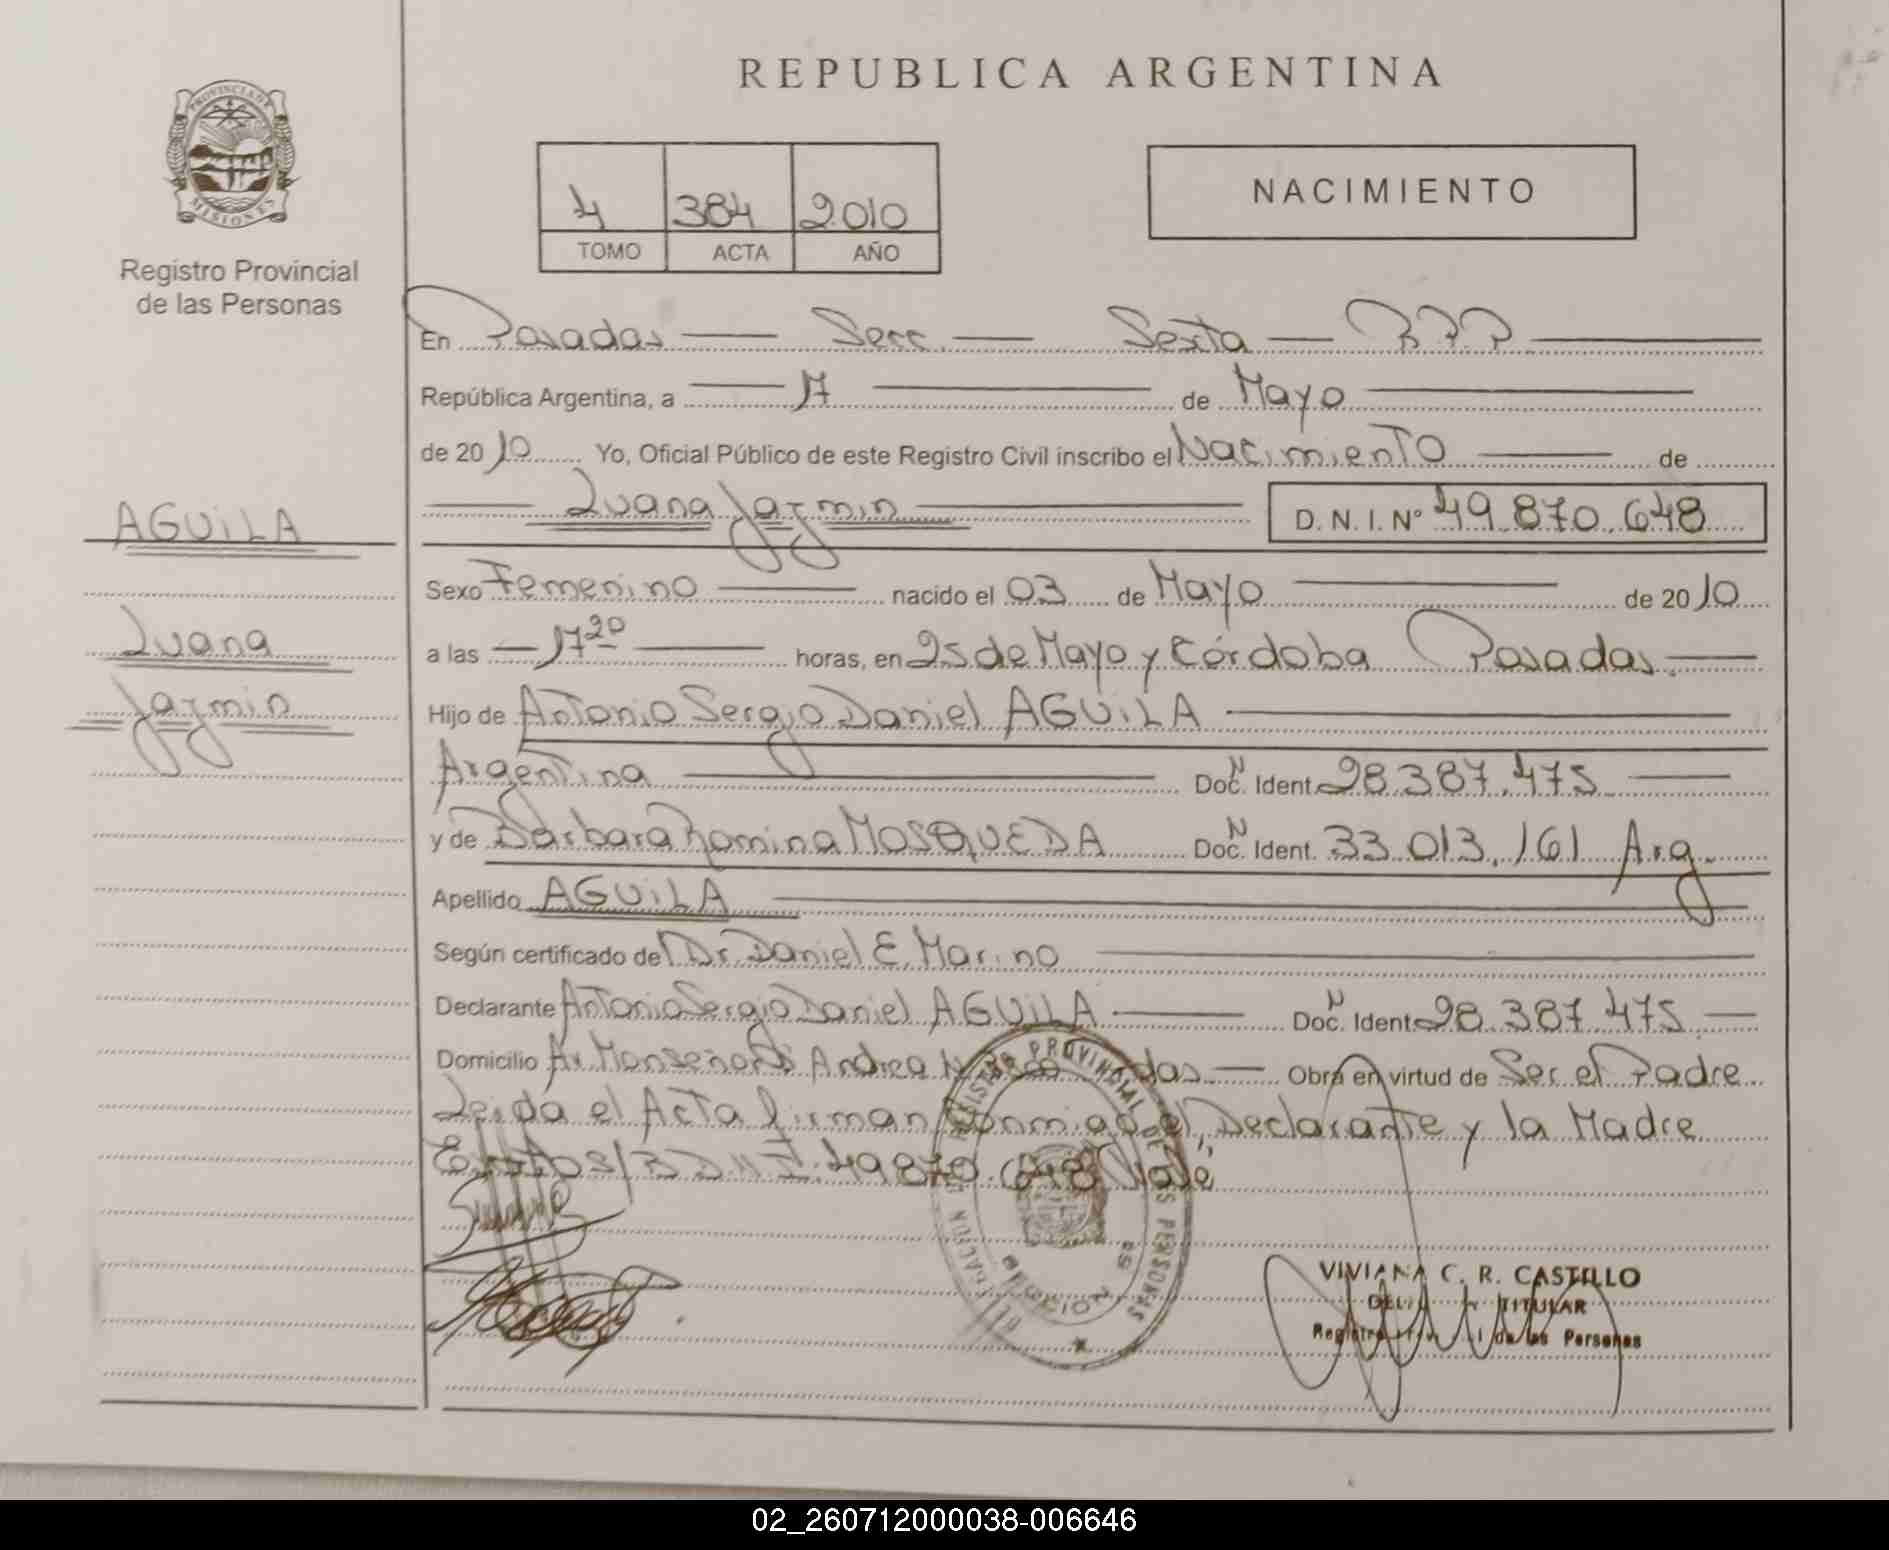 REPUBLICA ARGENTINA
PROVINCIA DE MISIONES
Registro Provincial
de las Personas
4 384 2010
TOMO ACTA AÑO
NACIMIENTO
En Posadas Secc. Sexta RPP
República Argentina, a 17 de Mayo
de 2010 Yo, Oficial Público de este Registro Civil inscribo el Nacimiento de
Luana Jazmin D.N.I.Nº 49.870.648
AGUILA
Luana
Jazmin
Sexo Femenino nacido el 03 de Mayo de 2010
a las 17 20 horas, en 25 de Mayo y Córdoba Posadas.
Hijo de Antonio Sergio Daniel AGUILA
Argentina Doc. N Ident. 28.387.475
y de Barbara Romina MOSQUEDA Doc. N Ident. 33.013.161 Arg.
Apellido AGUILA
Según certificado del Dr. Daniel E. Marino
Declarante Antonio Sergio Daniel AGUILA Doc. N Ident. 28.387.475
Domicilio Av. Monseñor Andrea Obra en virtud de Ser el Padre
Leida el Acta firman conmigo el Declarante y la Madre
49870.648 Vale
REGISTRO PROVINCIAL DE LAS PERSONAS
VIVIANA C. R. CASTILLO
TITULAR
de las Personas
02_260712000038-006646